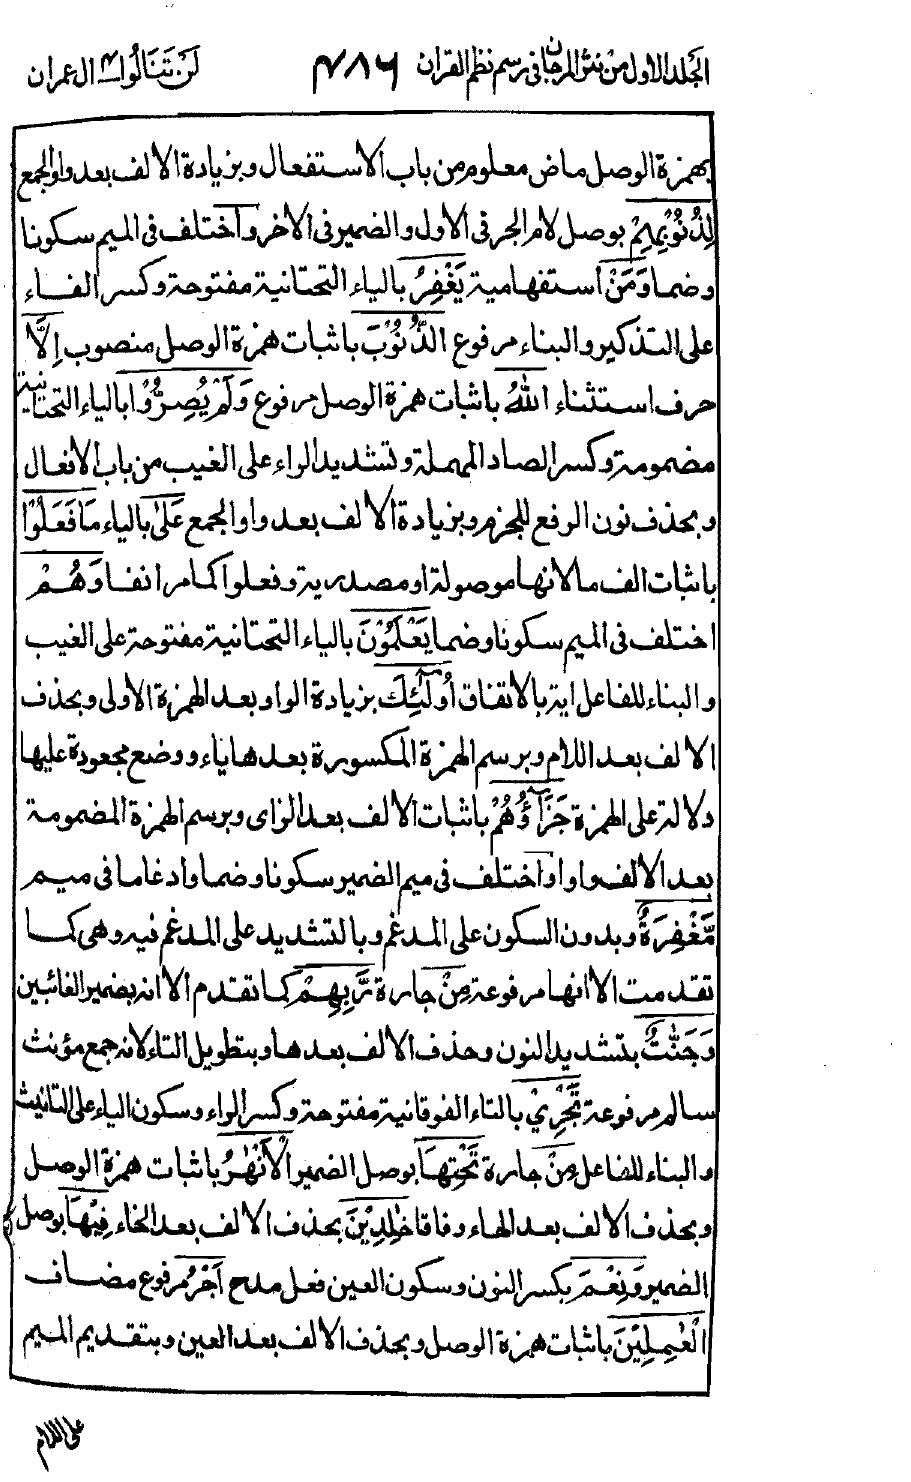 المجلد الاول من نثر المرجان فى رسم نظم القران ٤٨٦ لَنْ تَنَالُوا ٤ ال عمران
بهمزة الوصل ماض معلوم من باب الاستفعال وبزيادة الالف بعد واو الجمع
لِذُنُوْبِهِمْ بوصل لام الجر فى الاول والضمير فى الاخر واختلف فى الميم سكونا
وضما وَمَنْ استفهامية يَغْفِرُ بالياء التحتانية مفتوحة وكسر الفاء
على التذكير والبناء مرفوع الذُّنُوْبَ باثبات همزة الوصل منصوب اِلَّا
حرف استثناء اللهُ باثبات همزة الوصل مرفوع وَلَمْ يُصِرُّوْا بالياء التحتانية
مضمومة وكسر الصاد المهملة وتشديد الراء على الغيب من باب الافعال
وبحذف نون الرفع للجزم وبزيادة الالف بعد واو الجمع عَلٰى بالياء مَا فَعَلُوْا
باثبات الف ما لانها موصولة او مصدرية وفعلوا كما مر انفا وَهُمْ
اختلف فى الميم سكونا وضما يَعْلَمُوْنَ بالياء التحتانية مفتوحة على الغيب
والبناء للفاعل اية بالاتفاق اُولٰٓئِكَ بزيادة الواو بعد الهمزة الاولى وبحذف
الالف بعد اللام وبرسم الهمزة المكسورة بعدها ياء ووضع مجعودة عليها
دلالة على الهمزة جَزَآؤُهُمْ باثبات الالف بعد الزاى وبرسم الهمزة المضمومة
بعد الالف واوا واختلف فى ميم الضمير سكونا وضما وادغاما فى ميم
مَّغْفِرَةٌ وبدون السكون على المدغم وبالتشديد على المدغم فيه وهى كما
تقدمت الا انها مرفوعة مِنْ جارة رَّبِهِمْ كما تقدم الا انه بضمير الغائبين
وَجَنّٰتٌ بتشديد النون وحذف الالف بعدها وبتطويل التاء لانه جمع مؤنث
سالم مرفوعة تَجْرِيْ بالتاء الفوقانية مفتوحة وكسر الراء وسكون الياء على التانيث
والبناء للفاعل مِنْ جارة تَحْتِهَا بوصل الضمير الْاَنْهٰرُ باثبات همزة الوصل
وبحذف الالف بعد الهاء وفاقا خٰلِدِيْنَ بحذف الالف بعد الخاء فِيْهَا بوصل
الضمير وَنِعْمَ بكسر النون وسكون العين فعل مدح اَجْرُ مرفوع مضاف
الْعٰمِلِيْنَ باثبات همزة الوصل وبحذف الالف بعد العين وبتقديم الميم
على اللام